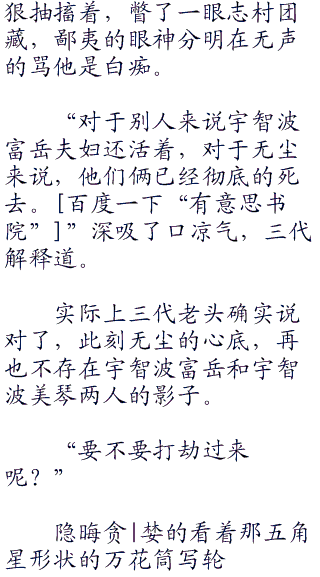 狠抽搐着，瞥了一眼志村团
藏，鄙夷的眼神分明在无声
的骂他是白痴。
“对于别人来说宇智波
富岳夫妇还活着，对于无尘
来说，他们俩已经彻底的死
去。[百度一下“有意思书
院”]”深吸了口凉气，三代
解释道。
实际上三代老头确实说
对了，此刻无尘的心底，再
也不存在宇智波富岳和宇智
波美琴两人的影子。
“要不要打劫过来
呢？”
隐晦贪|婪的看着那五角
星形状的万花筒写轮